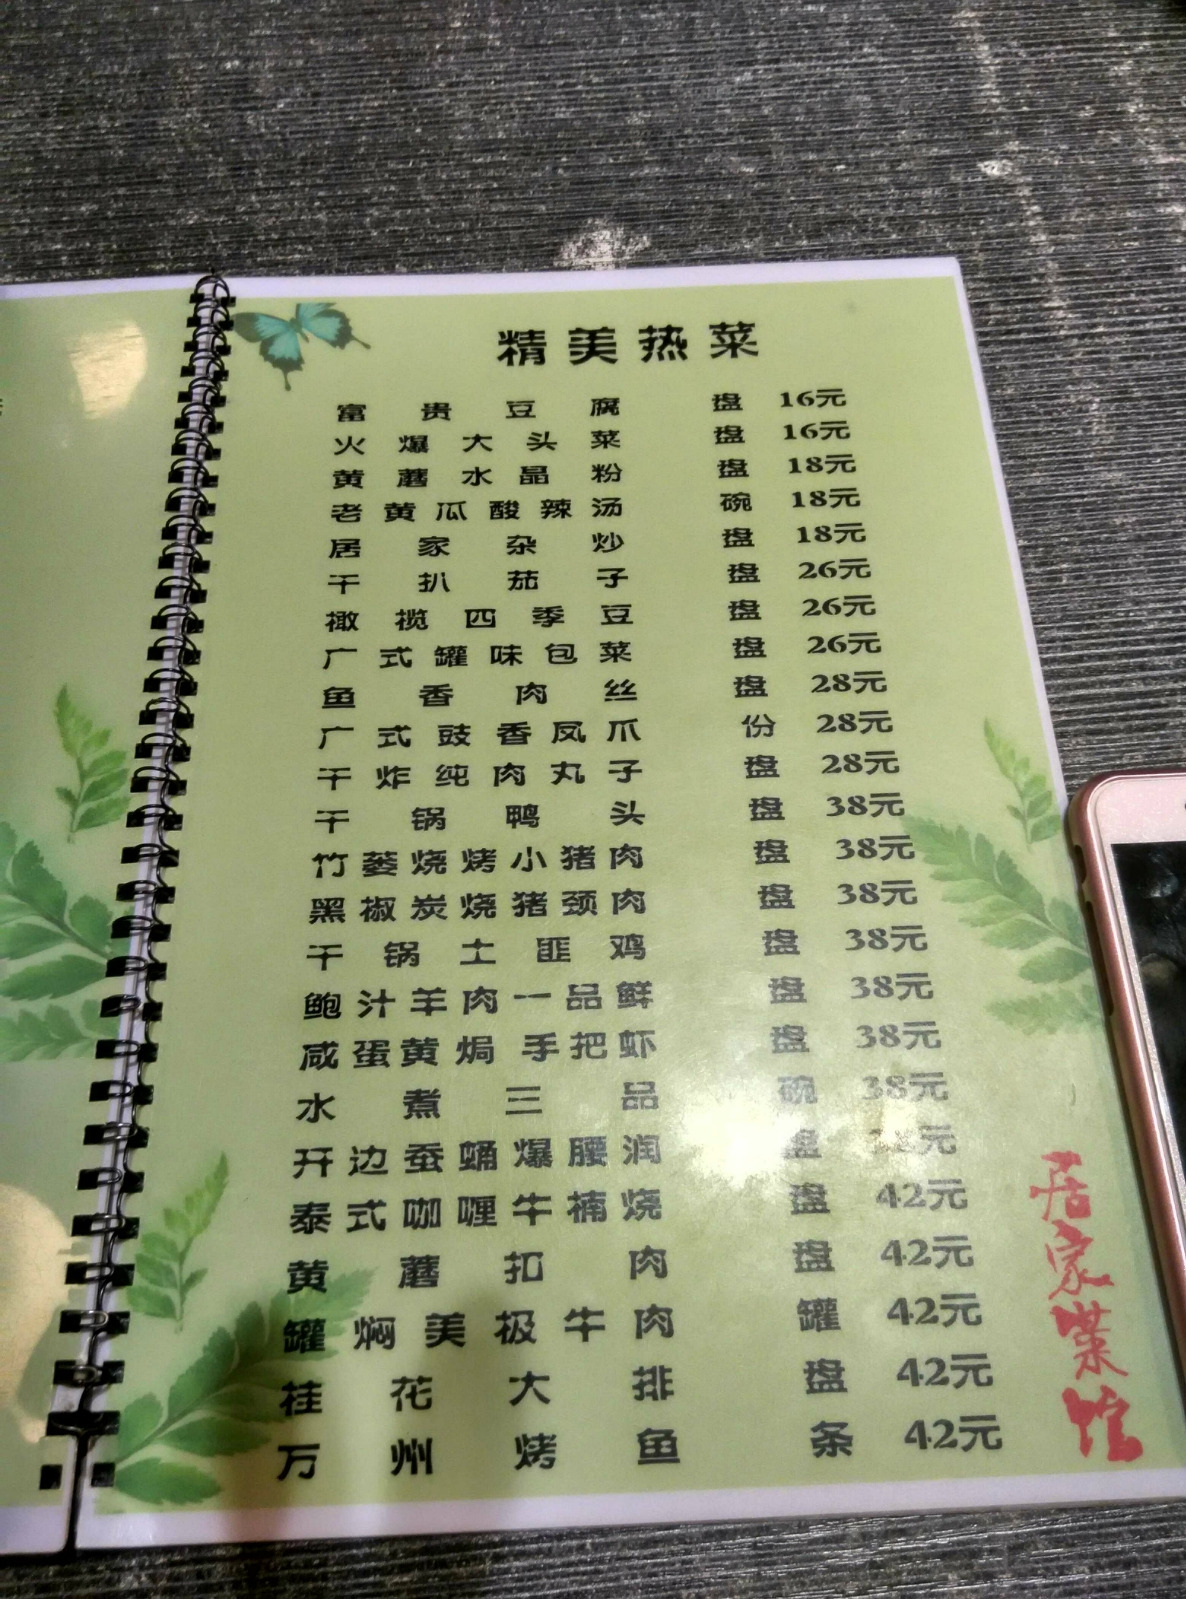 精美热菜
富贵豆腐 盘 16元
火爆大头菜 盘 16元
黄蘑水晶粉 盘 18元
老黄瓜酸辣汤 碗 18元
居家杂炒 盘 18元
干扒茄子 盘 26元
橄榄四季豆 盘 26元
广式罐味包菜 盘 26元
鱼香肉丝 盘 28元
广式豉香凤爪 份 28元
干炸纯肉丸子 盘 28元
干锅鸭头 盘 38元
竹蒌烧烤小猪肉 盘 38元
黑椒炭烧猪颈肉 盘 38元
干锅土匪鸡 盘 38元
鲍汁羊肉一品鲜 盘 38元
咸蛋黄焗手把虾 盘 38元
水煮三品 碗 38元
开边蚕蛹爆腰润 盘 元
泰式咖喱牛楠烧 盘 42元
黄蘑扣肉 盘 42元
罐焖美极牛肉 罐 42元
桂花大排 盘 42元
万州烤鱼 条 42元
居家菜馆